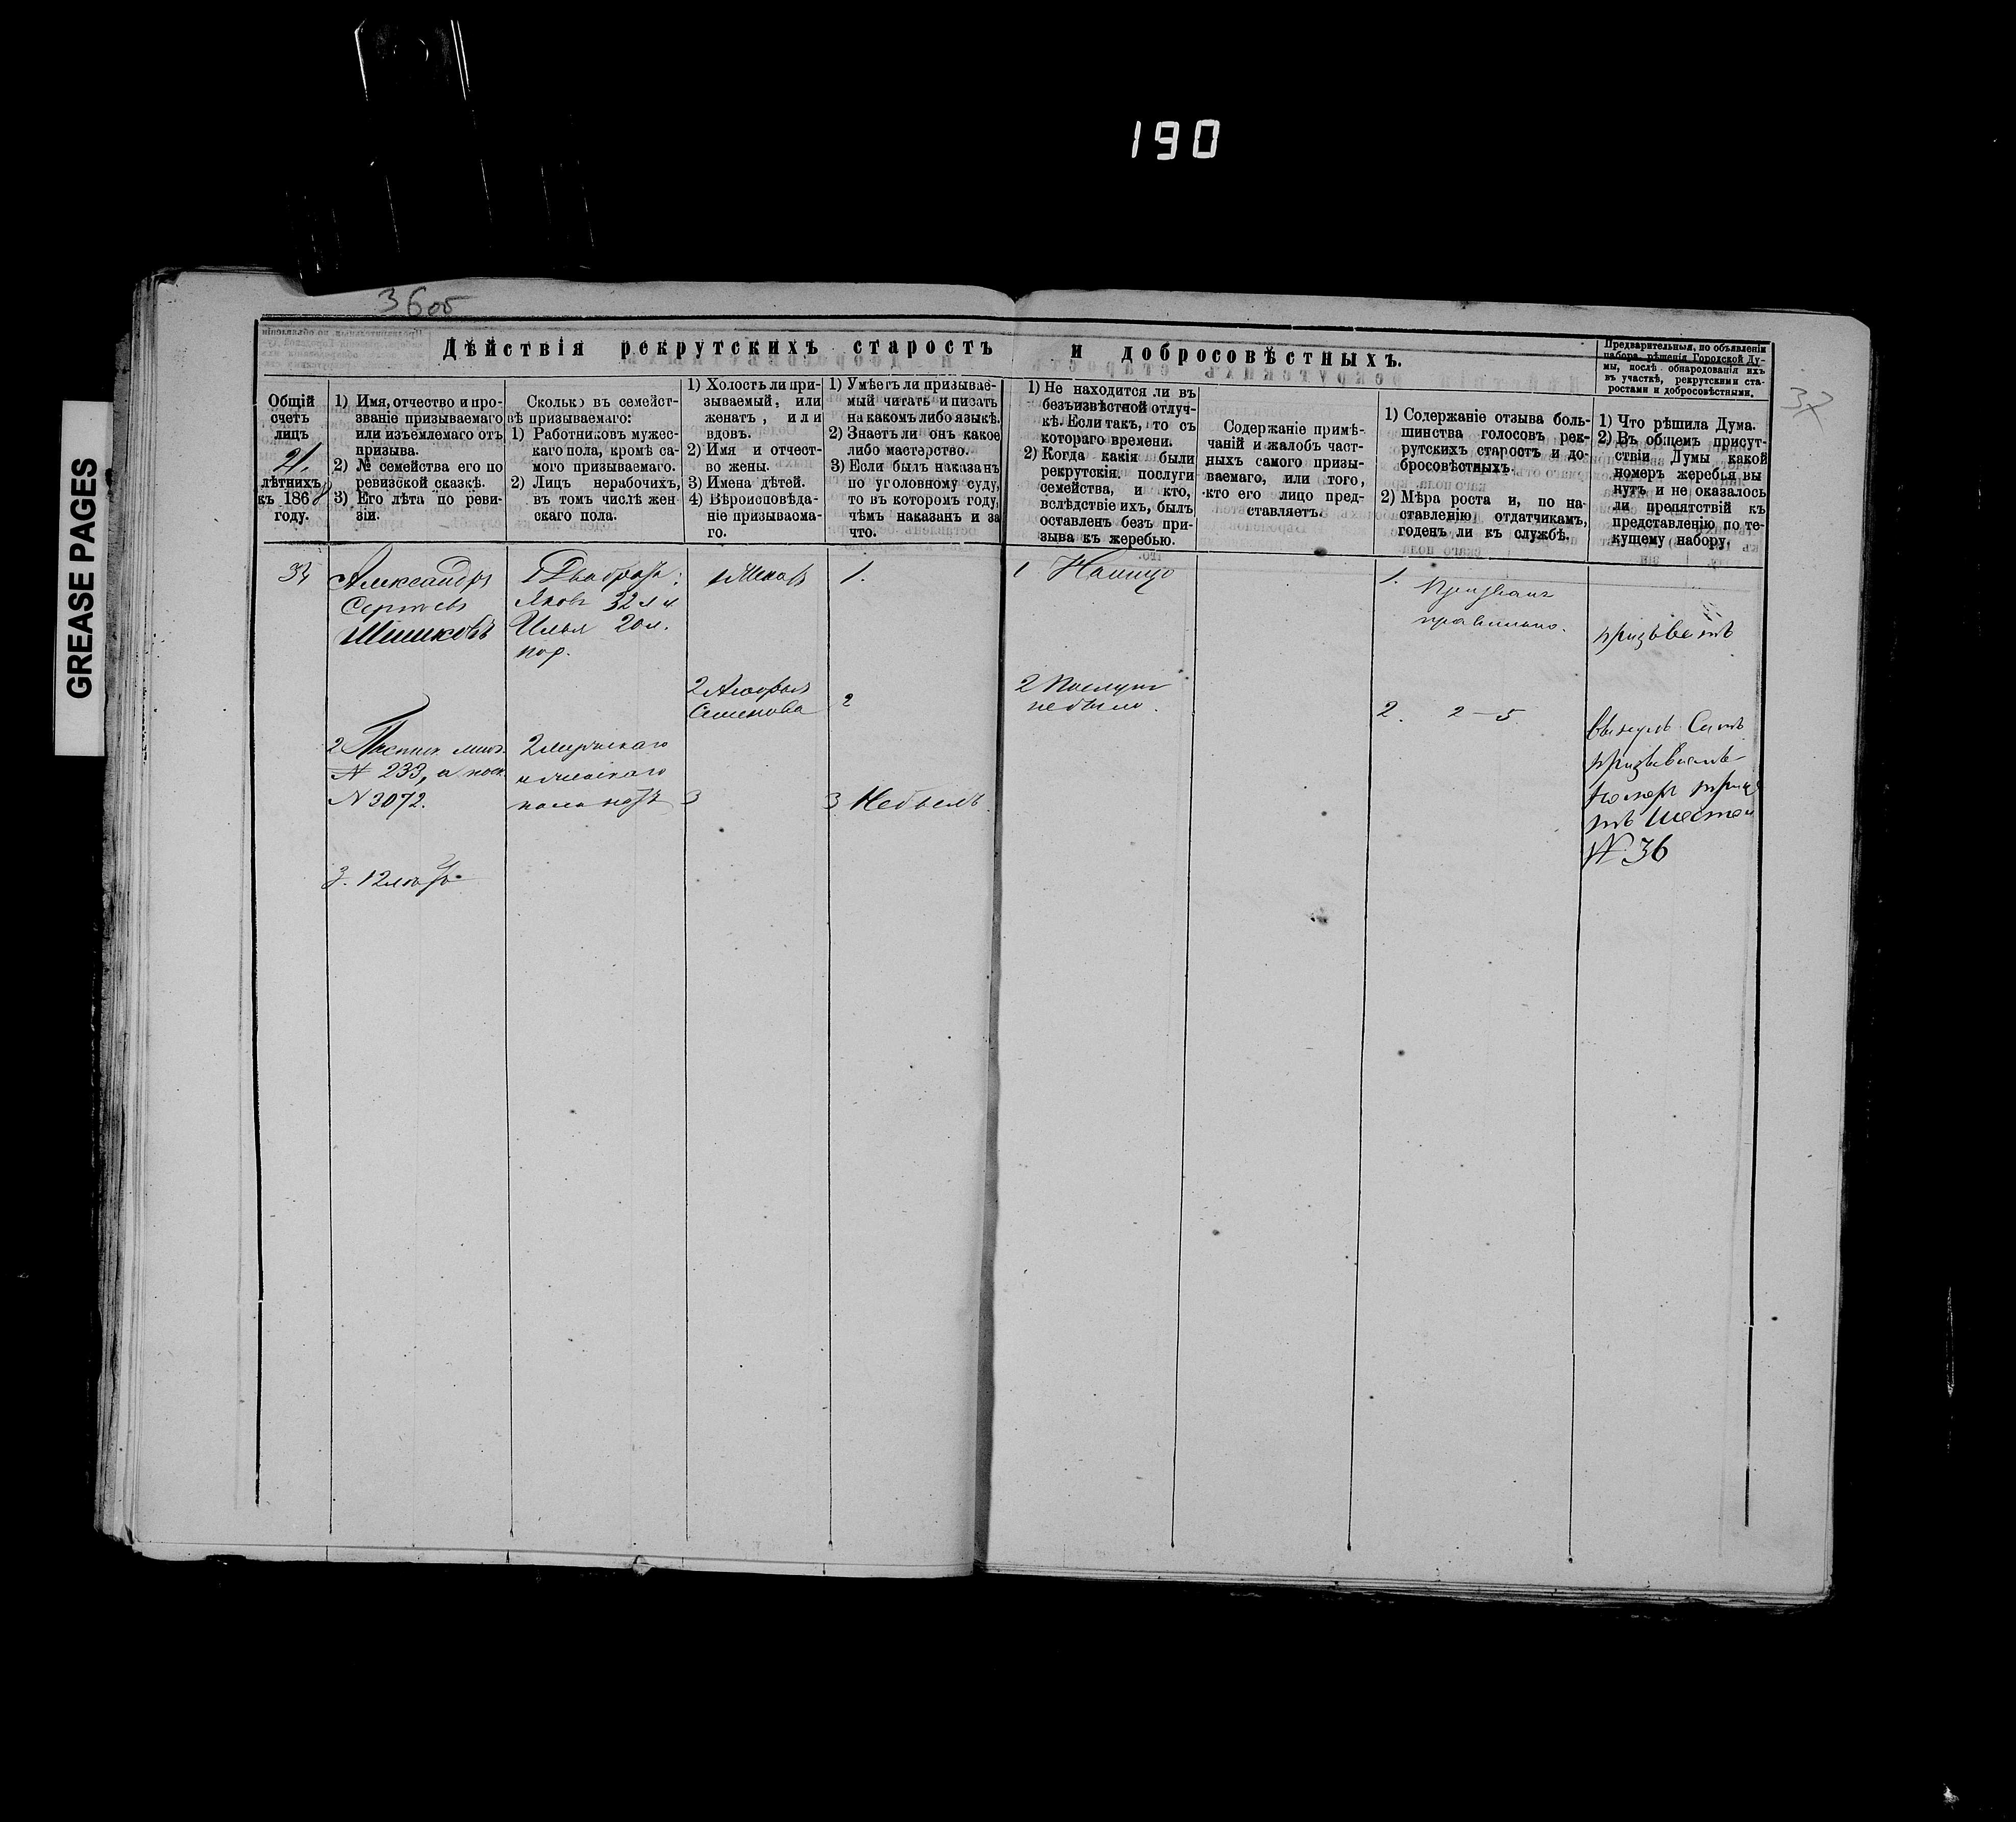 190
GREASE PAGES
36об
37
Дѣйствія рекрутскихъ старостъ и добросовѣстныхъ.
Предварительныя, по объявленіи
набора, рѣшенія Городской Ду-
мы, послѣ обнародованія ихъ
въ участкѣ, рекрутскими ста-
ростами и добросовѣстными.
Общій
счетъ
лицъ
21.
лѣтнихъ
къ 1868
году.
1) Имя, отчество и про-
званіе призываемаго
или изъемлемаго отъ
призыва.
2) № семейства его по
ревизской сказкѣ.
3) Его лѣта по реви-
зіи.
Сколько въ семейст-
вѣ призываемаго:
1) Работниковъ мужес-
каго пола, кромѣ са-
мого призываемаго.
2) Лицъ нерабочихъ,
въ томъ числѣ жен-
скаго пола.
1) Холостъ ли при-
зываемый, или
женатъ, или
вдовъ.
2) Имя и отчест-
во жены.
3) Имена дѣтей.
4) Вѣроисповѣда-
ніе призываема-
го.
1) Умѣетъ ли призывае-
мый читать и писать
на какомъ либо языкѣ.
2) Знаетъ ли онъ какое
либо мастерство.
3) Если былъ наказанъ
по уголовному суду,
то въ которомъ году,
чѣмъ наказанъ и за
что.
1) Не находится ли въ
безъизвѣстной отлуч-
кѣ. Если такъ, то съ
котораго времени.
2) Когда какія были
рекрутскія послуги
семейства, и кто,
вслѣдствіе ихъ, былъ
оставленъ безъ при-
зыва къ жеребью.
Содержаніе примѣ-
чаній и жалобъ част-
ныхъ самого призы-
ваемаго, или того,
кто его лицо пред-
ставляетъ.
1) Содержаніе отзыва боль-
шинства голосовъ рек-
рутскихъ старостъ и до-
бросовѣстныхъ.
2) Мѣра роста и, по на-
ставленію отдатчикамъ,
годенъ ли къ службѣ.
1) Что рѣшила Дума.
2) Въ общемъ присут-
ствіи Думы какой
номеръ жеребья вы
нутъ и не оказалось
ли препятствій къ
представленію по те-
кущему набору.
34
Александръ
Сергѣевъ
Шишковъ
2
№ 233, а
№ 3072.
3. 12 лѣтъ
1 Два брата:
Яковъ 32 л. и
Илья 20 л.
2
1 Женатъ
2
Семенова
3
1.
2
3 Небылъ.
1 Налицо
2 Послугъ
небыло.
1. Призванъ
правильно.
2. 2—5.
призывать
вынулъ Самъ
призываемый
№ 36